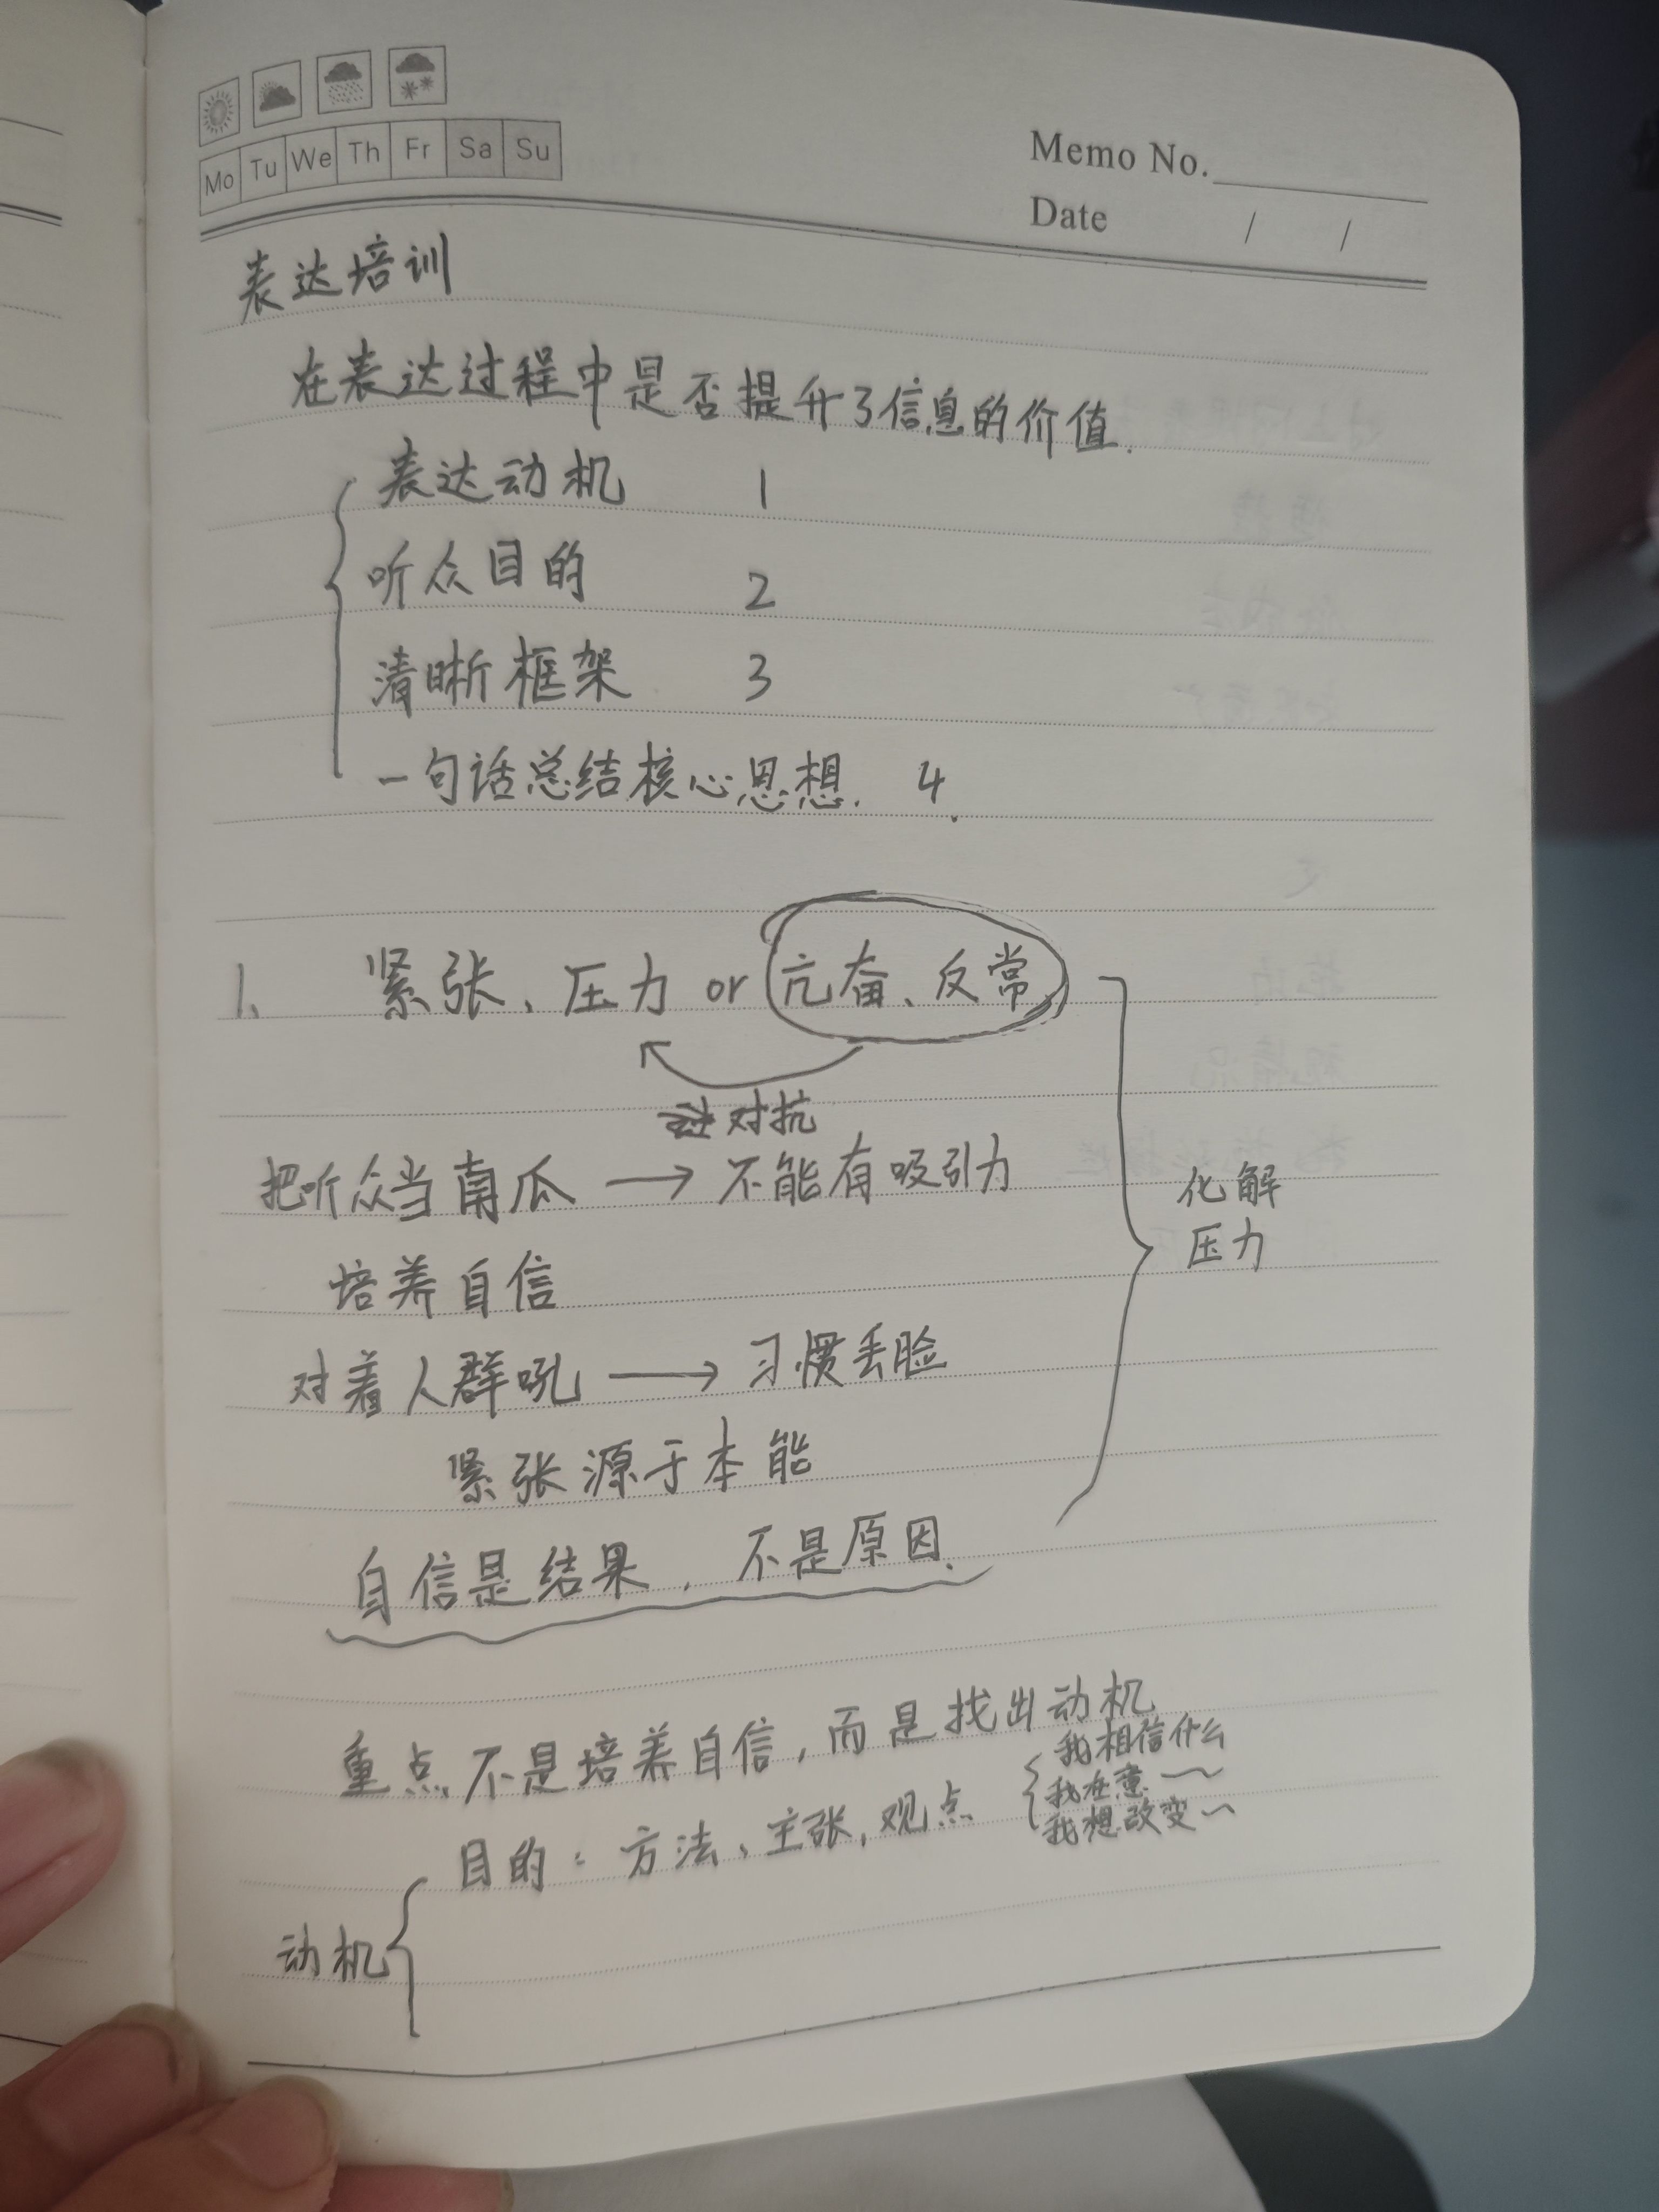 Mo Tu We Th Fr Sa Su
Memo No.
Date / /
表达培训
在表达过程中是否提升了信息的价值.
表达动机 1
听众目的 2
清晰框架 3
一句话总结核心思想. 4
1、 紧张、压力 or 亢奋、反常
对抗
把听众当南瓜 → 不能有吸引力
化解
压力
培养自信
对着人群吼 → 习惯丢脸
紧张源于本能
自信是结果，不是原因.
重点不是培养自信，而是找出动机
我相信什么
我在意~
我想改变~
目的：方法、主张，观点
动机